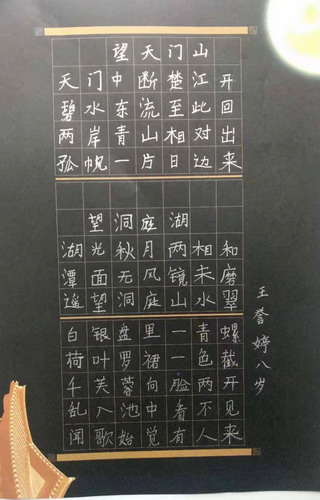 望天门山
天门中断楚江开
碧水东流至此回
两岸青山相对出
孤帆一片日边来
望洞庭湖
湖光秋月两相和
潭面无风镜未磨
遥望洞庭山水翠
白银盘里一青螺
荷叶罗裙一色截
千芙蓉向脸两开
乱入池中看不见
闻歌始觉有人来
王誉婷八岁